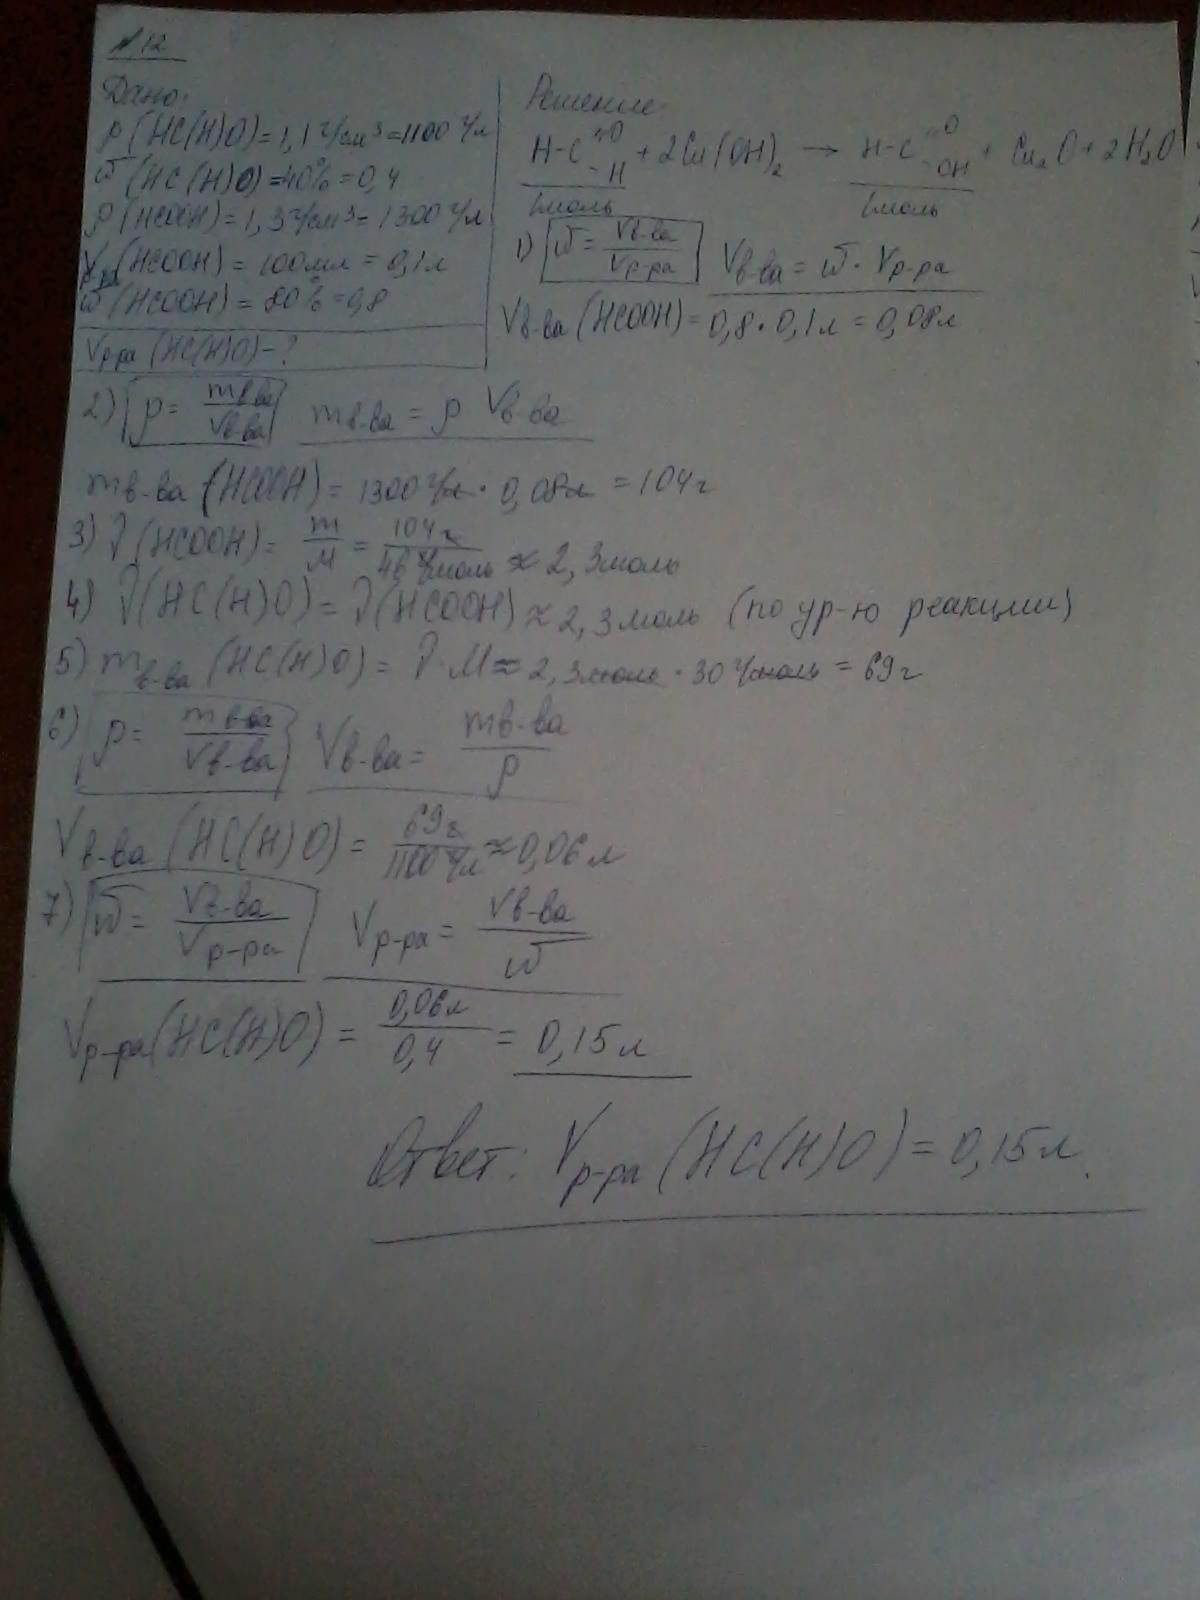 №12
Дано:
ρ(HC(H)O)=1,1 г/см³=1100 г/л
w(HC(H)O)=40%=0,4
ρ(HCOOH)=1,3 г/см³=1300 г/л
Vр-ра(HCOOH)=100мл=0,1л
w(HCOOH)=80%=0,8
Vр-ра(HC(H)O)-?
Решение:
H-C=O-H+2Cu(OH)₂→H-C=O-OH+Cu₂O+2H₂O
1моль 1моль
1) w=Vв-ва/Vр-ра Vв-ва=w·Vр-ра
Vв-ва(HCOOH)=0,8·0,1л=0,08л
2) ρ=mв-ва/Vв-ва mв-ва=ρ Vв-ва
mв-ва(HCOOH)=1300 г/л·0,08л=104г
3) ν(HCOOH)=m/M=104г/46 г/моль≈2,3моль
4) ν(HC(H)O)=ν(HCOOH)≈2,3моль (по ур-ю реакции)
5) mв-ва(HC(H)O)=ν·M≈2,3моль·30 г/моль=69г
6) ρ=mв-ва/Vв-ва Vв-ва=mв-ва/ρ
Vв-ва(HC(H)O)=69г/1100 г/л≈0,06л
7) w=Vв-ва/Vр-ра Vр-ра=Vв-ва/w
Vр-ра(HC(H)O)=0,06л/0,4=0,15л
Ответ: Vр-ра(HC(H)O)=0,15л.